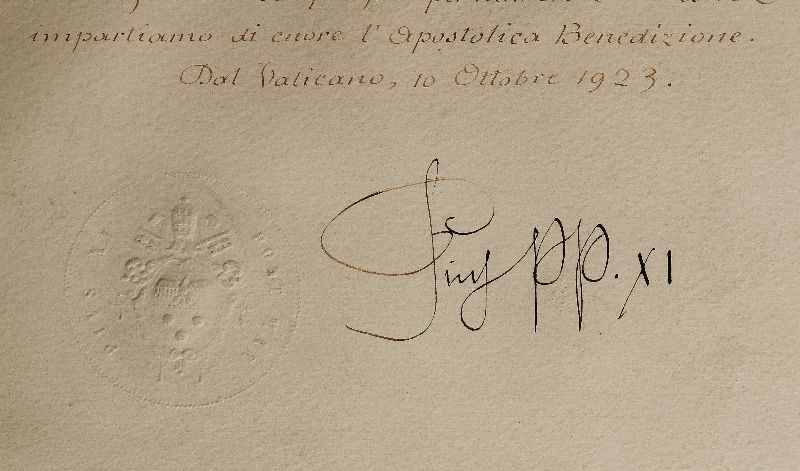 impartiamo di cuore l'Apostolica Benedizione.
Dal Vaticano, 10 Ottobre 1923.
Pius PP. XI